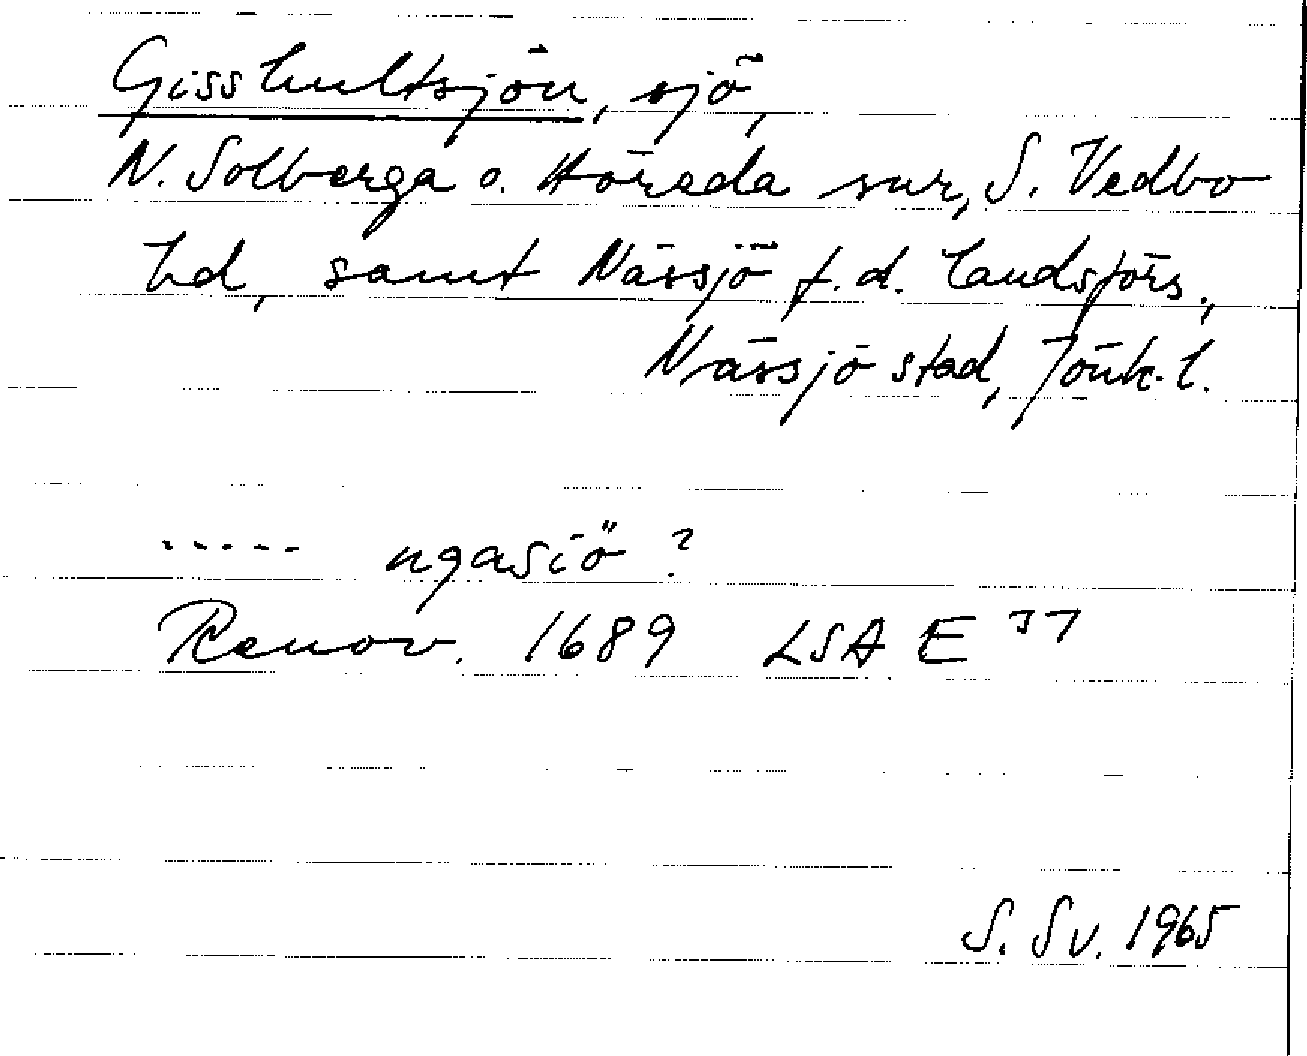 Gisshultsjön, sjö,
N. Solberga o. Höreda snr, S. Vedbo
hd, samt Nässjö f.d. landsförs.,
Nässjö stad, Jönk. l.
..... ngasiö ?
Renov. 1689 LSA E 37
S. Sv. 1965